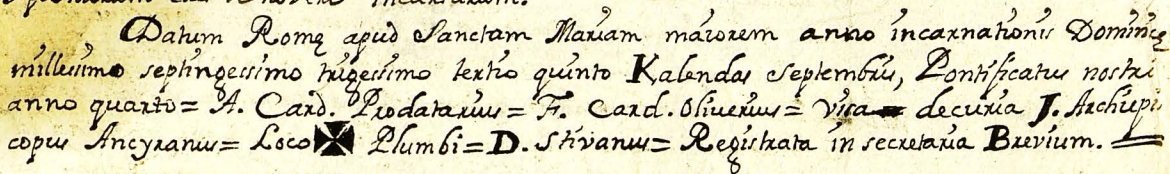 Datum Romę apud Sanctam Mariam maiorem anno incarnationis Dominicę
millesimo septingessimo trigessimo tertio quinto Kalendas Septembris, Pontificatus nostri
anno quarto = A. Card. Prodatarius = F. Card. Oliverius = visa = de curia J. Archiepis
copus Ancyranus = Loco ✠ Plumbi = D. Stivanus = Registrata in secretaria Brevium. =